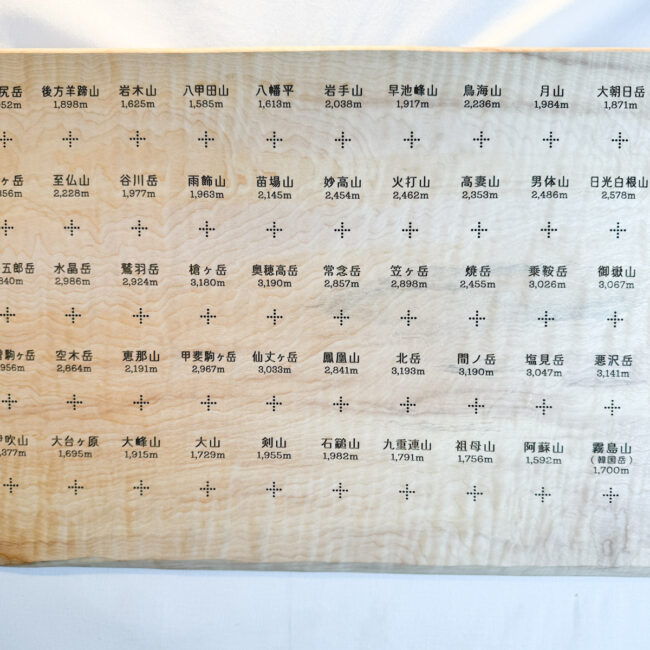 尻岳 後方羊蹄山 岩木山 八甲田山 八幡平 岩手山 早池峰山 鳥海山 月山 大朝日岳
52m 1,898m 1,625m 1,585m 1,613m 2,038m 1,917m 2,236m 1,984m 1,871m
ヶ岳 至仏山 谷川岳 雨飾山 苗場山 妙高山 火打山 高妻山 男体山 日光白根山
356m 2,228m 1,977m 1,963m 2,145m 2,454m 2,462m 2,353m 2,486m 2,578m
五郎岳 水晶岳 鷲羽岳 槍ヶ岳 奥穂高岳 常念岳 笠ヶ岳 焼岳 乗鞍岳 御嶽山
840m 2,986m 2,924m 3,180m 3,190m 2,857m 2,898m 2,455m 3,026m 3,067m
駒ヶ岳 空木岳 恵那山 甲斐駒ヶ岳 仙丈ヶ岳 鳳凰山 北岳 間ノ岳 塩見岳 悪沢岳
956m 2,864m 2,191m 2,967m 3,033m 2,841m 3,193m 3,190m 3,047m 3,141m
吹山 大台ヶ原 大峰山 大山 剣山 石鎚山 九重連山 祖母山 阿蘇山 霧島山
377m 1,695m 1,915m 1,729m 1,955m 1,982m 1,791m 1,756m 1,592m (韓国岳)
1,700m